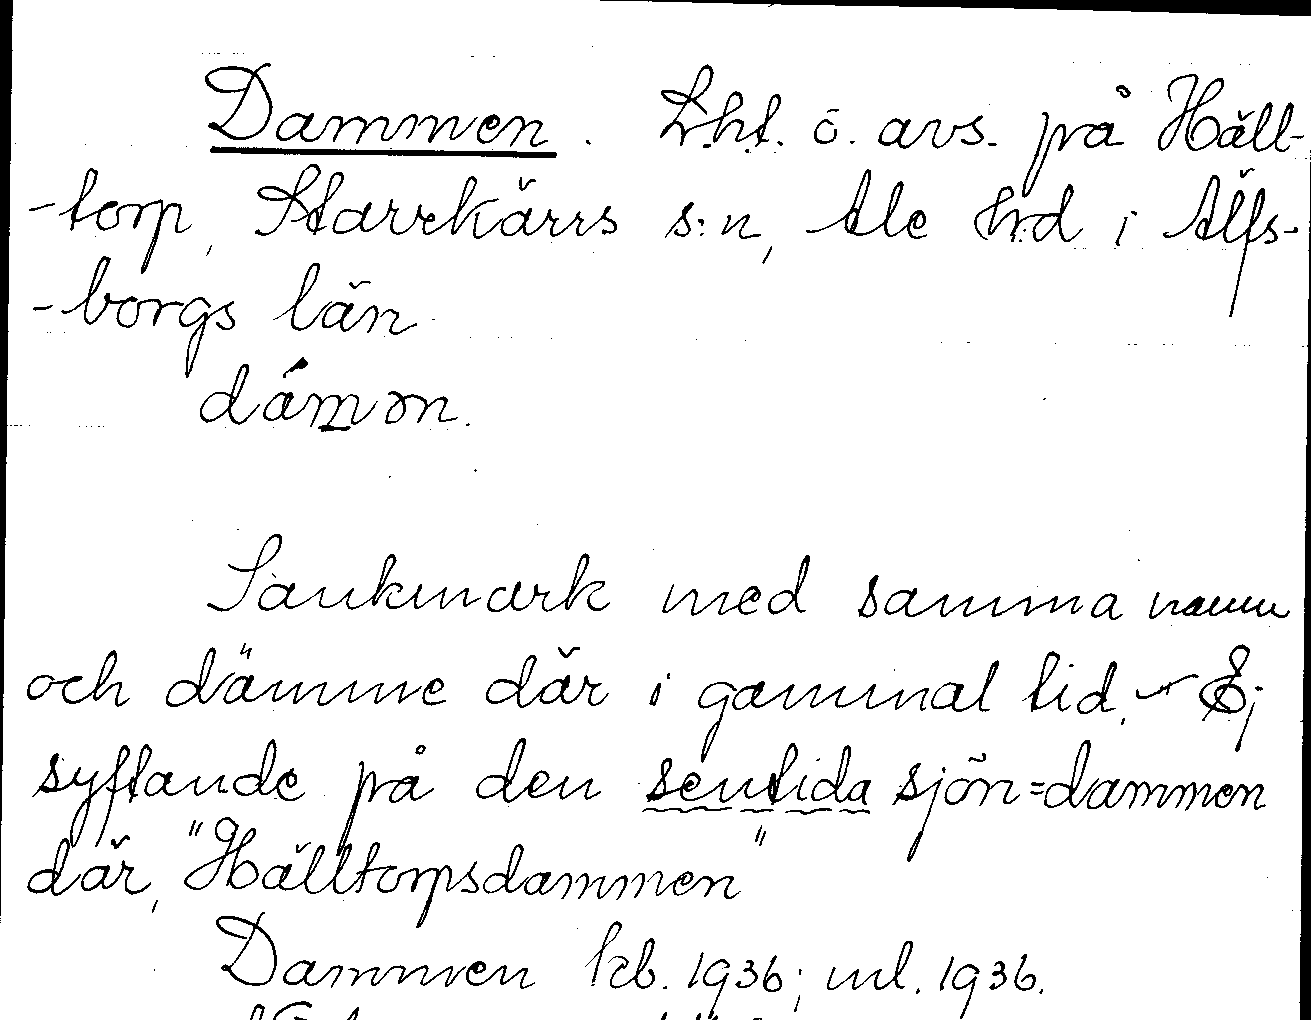 Dammen. Lht. ö. avs. på Häll-
-torp, Starrkärrs s:n, Ale hrd i Älfs-
-borgs län
dámən.
Sankmark med samma namn
och dämme där i gammal tid. – Ej
syftande på den sentida sjön=dammen
där, "Hälltorpsdammen"
Dammen kb. 1936; ml. 1936.